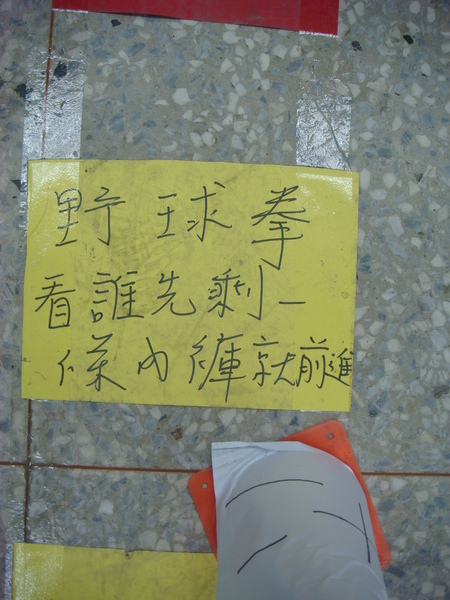 野球拳
看誰先剩一
條內褲就前進